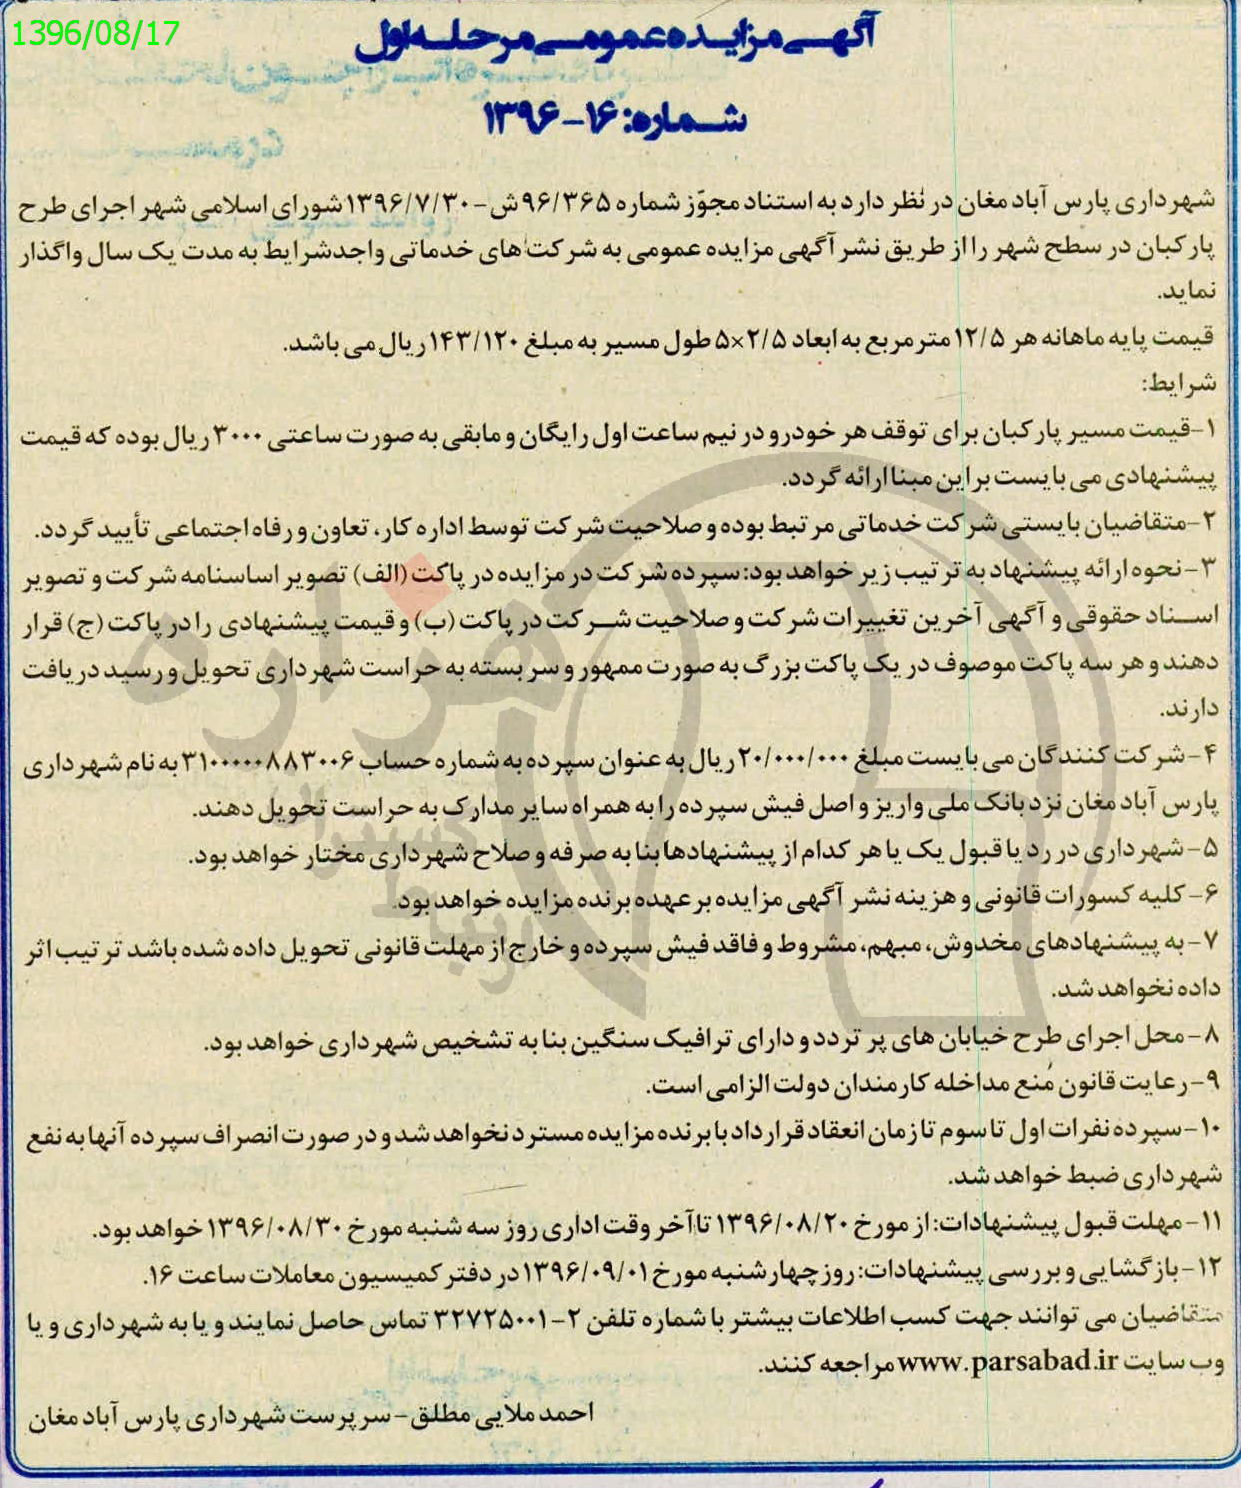 1396/08/17
آگهی مزایده عمومی مرحله اول
شماره: ۱۶-۱۳۹۶
شهرداری پارس آباد مغان در نظر دارد به استناد مجوّز شماره ۹۶/۳۶۵ش-۱۳۹۶/۷/۳۰شورای اسلامی شهر اجرای طرح
پارکبان در سطح شهر را از طریق نشر آگهی مزایده عمومی به شرکت های خدماتی واجدشرایط به مدت یک سال واگذار
نماید.
قیمت پایه ماهانه هر ۱۲/۵مترمربع به ابعاد ۲/۵×۵ طول مسیر به مبلغ ۱۴۳/۱۲۰ریال می باشد.
شرایط:
۱-قیمت مسیر پارکبان برای توقف هر خودرو در نیم ساعت اول رایگان و مابقی به صورت ساعتی ۳۰۰۰ریال بوده که قیمت
پیشنهادی می بایست براین مبنا ارائه گردد.
۲-متقاضیان بایستی شرکت خدماتی مرتبط بوده و صلاحیت شرکت توسط اداره کار، تعاون و رفاه اجتماعی تأیید گردد.
۳-نحوه ارائه پیشنهاد به ترتیب زیر خواهد بود: سپرده شرکت در مزایده در پاکت (الف) تصویر اساسنامه شرکت و تصویر
اسناد حقوقی و آگهی آخرین تغییرات شرکت و صلاحیت شرکت در پاکت (ب) و قیمت پیشنهادی را در پاکت (ج) قرار
دهند و هر سه پاکت موصوف در یک پاکت بزرگ به صورت ممهور و سربسته به حراست شهرداری تحویل و رسید دریافت
دارند.
۴-شرکت کنندگان می بایست مبلغ ۲۰/۰۰۰/۰۰۰ریال به عنوان سپرده به شماره حساب ۳۱۰۰۰۰۰۸۸۳۰۰۶به نام شهرداری
پارس آباد مغان نزد بانک ملی واریز و اصل فیش سپرده را به همراه سایر مدارک به حراست تحویل دهند.
۵-شهرداری در رد یا قبول یک یا هر کدام از پیشنهادها بنا به صرفه و صلاح شهرداری مختار خواهد بود.
۶-کلیه کسورات قانونی و هزینه نشر آگهی مزایده بر عهده برنده مزایده خواهد بود.
۷-به پیشنهادهای مخدوش، مبهم، مشروط و فاقد فیش سپرده و خارج از مهلت قانونی تحویل داده شده باشد ترتیب اثر
داده نخواهد شد.
۸-محل اجرای طرح خیابان های پر تردد و دارای ترافیک سنگین بنا به تشخیص شهرداری خواهد بود.
۹-رعایت قانون منع مداخله کارمندان دولت الزامی است.
۱۰-سپرده نفرات اول تا سوم تا زمان انعقاد قرارداد با برنده مزایده مسترد نخواهد شد و در صورت انصراف سپرده آنها به نفع
شهرداری ضبط خواهد شد.
۱۱-مهلت قبول پیشنهادات: از مورخ ۱۳۹۶/۰۸/۲۰ تا آخر وقت اداری روز سه شنبه مورخ ۱۳۹۶/۰۸/۳۰خواهد بود.
۱۲-بازگشایی و بررسی پیشنهادات: روز چهارشنبه مورخ ۱۳۹۶/۰۹/۰۱در دفتر کمیسیون معاملات ساعت ۱۶.
متقاضیان می توانند جهت کسب اطلاعات بیشتر با شماره تلفن ۲-۳۲۷۲۵۰۰۱ تماس حاصل نمایند و یا به شهرداری و یا
وب سایت www.parsabad.ir مراجعه کنند.
احمد ملایی مطلق-سرپرست شهرداری پارس آباد مغان